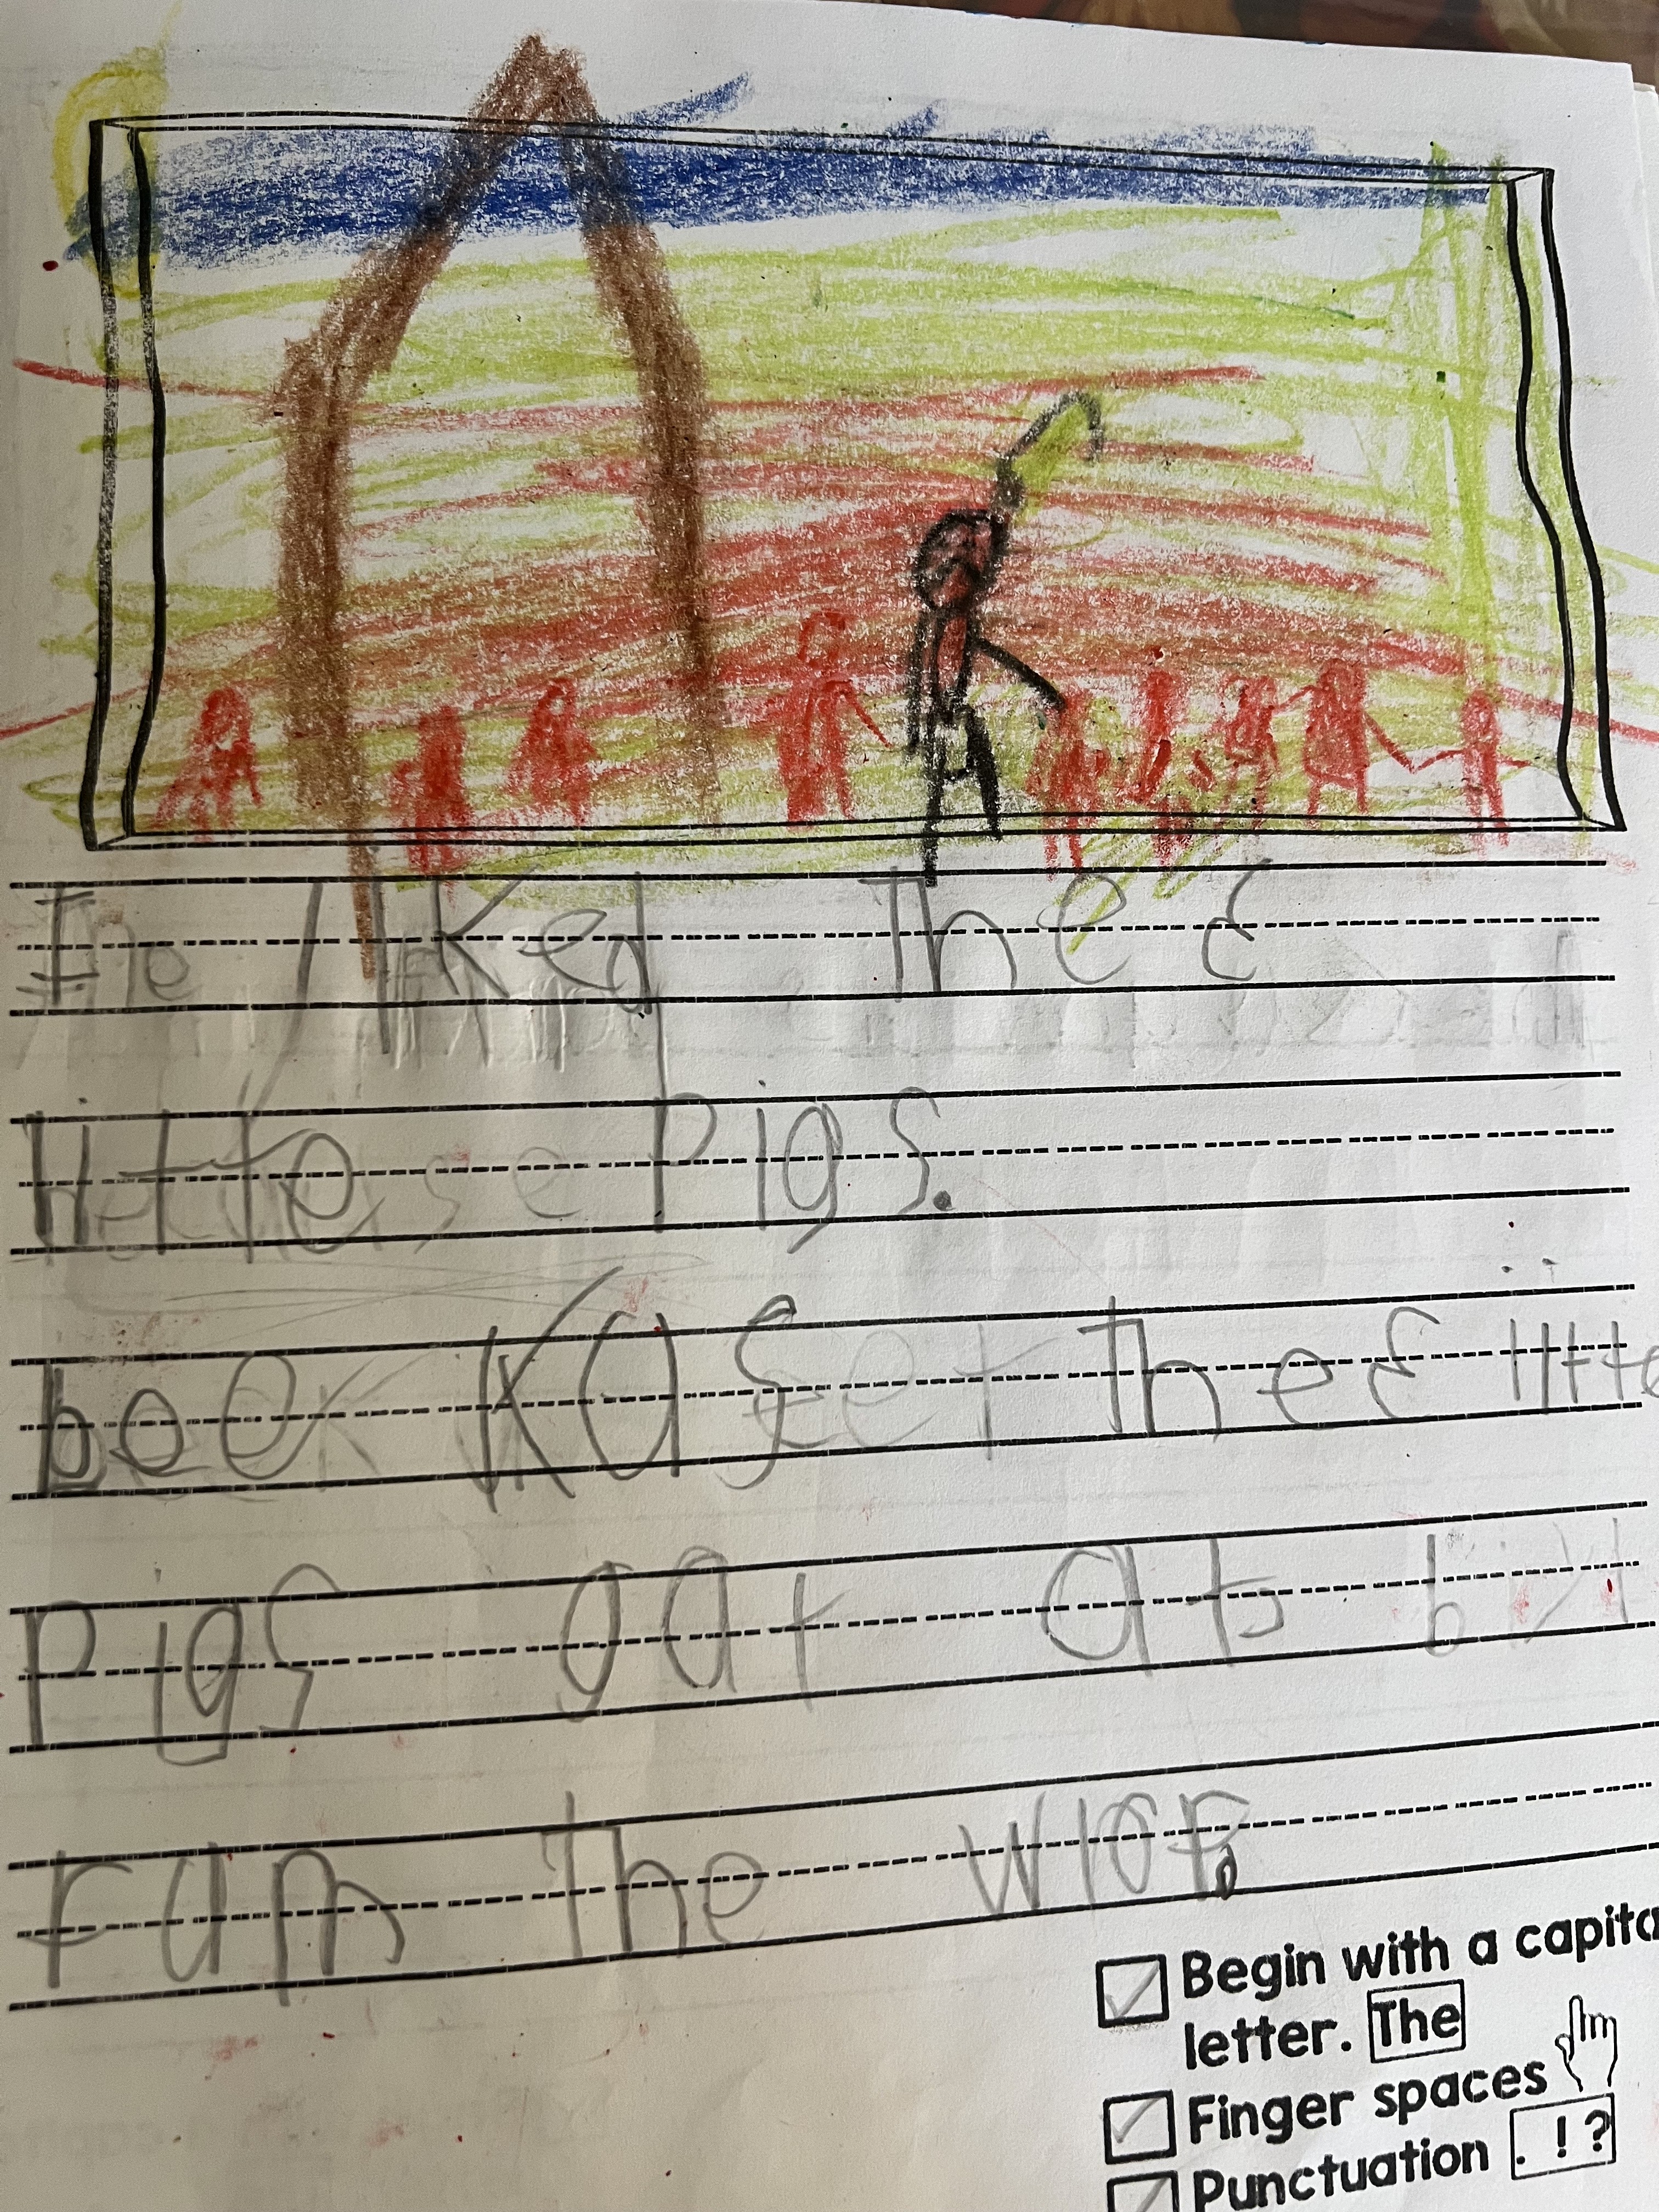 I liked the 3
little pigs.
beekas the 3 little
pigs gat ats
ram the wlof.
Begin with a capita
letter. The
Finger spaces
Punctuation . ! ?